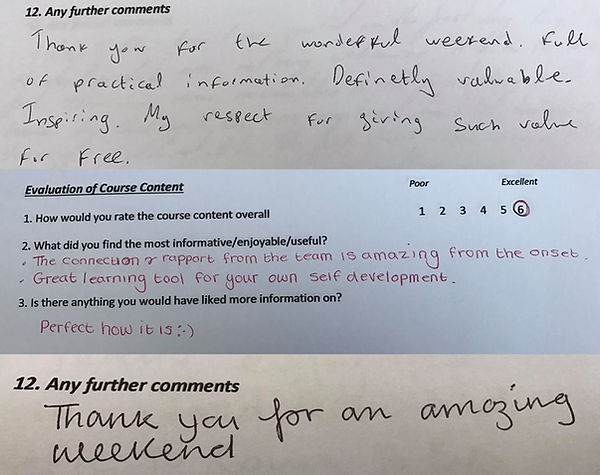 12. Any further comments
Thank you for the wonderful weekend. Full
of practical information. Definetly valuable.
Inspiring. My respect for giving such value
for free.
Evaluation of Course Content
Poor Excellent
1. How would you rate the course content overall 1 2 3 4 5 6
2. What did you find the most informative/enjoyable/useful?
• The connection & rapport from the team is amazing from the onset.
• Great learning tool for your own self development.
3. Is there anything you would have liked more information on?
Perfect how it is :-)
12. Any further comments
Thank you for an amazing
weekend